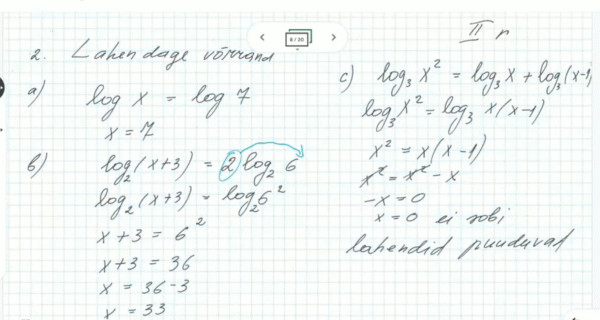 8 / 20
II r
2. Lahendage võrrand
a) log x = log 7
x = 7
b) log₂(x+3) = 2 log₂ 6
log₂(x+3) = log₂6²
x + 3 = 6²
x+3 = 36
x = 36-3
x = 33
c) log₃x² = log₃x + log₃(x-1)
log₃x² = log₃ x(x-1)
x² = x(x-1)
x² = x² - x
-x = 0
x = 0 ei sobi
lahendid puuduvad